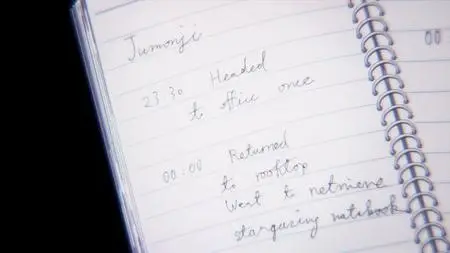 Jumonji
23:30 Headed
to office once
00:00 Returned
to rooftop
Went to retrieve
stargazing notebook
00